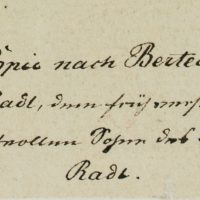 opie nach Berte
Radl, dem früh vers
tvollen Sohne des
Radl.